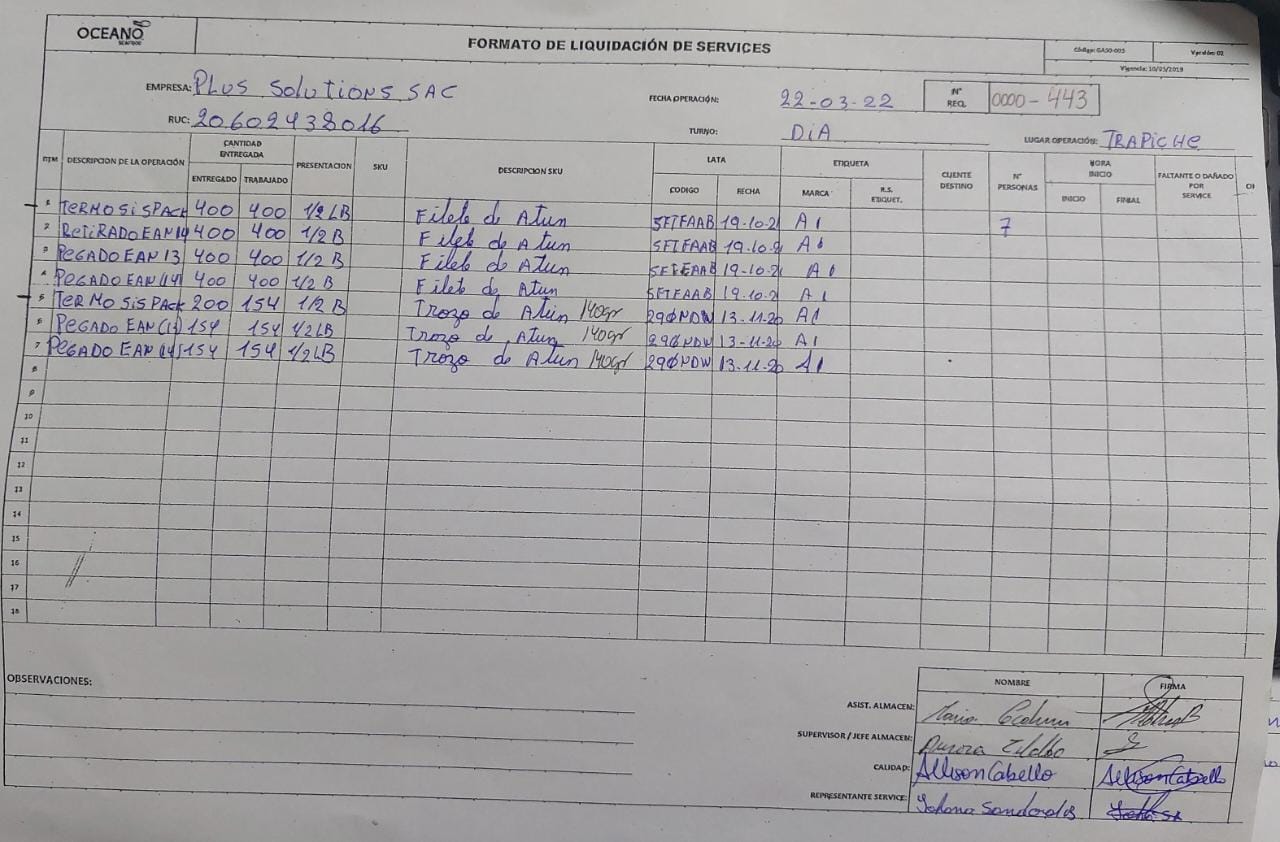 OCEANO
SEAFOOD
FORMATO DE LIQUIDACIÓN DE SERVICES
Código: GASO-003 Versión: 02
Vigencia: 10/03/2019
EMPRESA: PLUS SOLUTIONS SAC
FECHA OPERACIÓN: 22-03-22
N° REQ. 0000-443
RUC: 20602438016
TURNO: DIA
LUGAR OPERACIÓN: TRAPICHE
ITM DESCRIPCION DE LA OPERACIÓN CANTIDAD ENTREGADA PRESENTACION SKU DESCRIPCION SKU LATA ETIQUETA CLIENTE DESTINO N° PERSONAS HORA INICIO FALTANTE O DAÑADO POR SERVICE
ENTREGADO TRABAJADO CODIGO FECHA MARCA R.S. ETIQUET. INICIO FINIAL
1 TERMOSISPACK 400 400 1/2 LB Filete de Atun SETFAAB 19-10-21 A1 7
2 RETIRADO EAN 14 400 400 1/2 B Filete de Atun SETFAAB 19-10-21 A1
3 PEGADO EAN 13 400 400 1/2 B Filete de Atun SETFAAB 19-10-21 A1
4 PEGADO EAN (14) 400 400 1/2 B Filete de Atun SETFAAB 19.10.21 A1
5 TERMOSISPACK 200 154 1/2 B Trozo de Atun 140gr 290NDW 13-11.20 A1
6 PEGADO EAN (13) 154 154 1/2 LB Trozo de Atun 140gr 290NDW 13-11-20 A1
7 PEGADO EAN (14) 154 154 1/2 LB Trozo de Atun 140gr 290NDW 13-11-20 A1
8
9
10
11
12
13
14
15
16
17
18
OBSERVACIONES:
NOMBRE FIRMA
ASIST. ALMACEN: Maria
SUPERVISOR / JEFE ALMACEN: Aurora
CALIDAD: Allison Cabello Allison Cabello
REPRESENTANTE SERVICE: